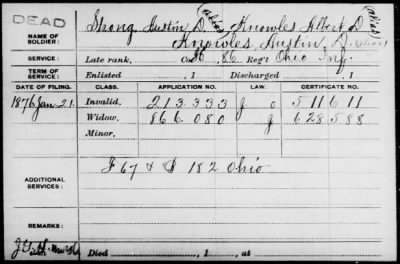 DEAD
NAME OF SOLDIER: Strong, Austin D. (alias) Knowles, Albert D. (alias)
Knowles, Austin D.
SERVICE: Late rank, Co. 86 Reg't Ohio Inf.
TERM OF SERVICE: Enlisted , 1 Discharged , 1
DATE OF FILING. CLASS. APPLICATION NO. LAW. CERTIFICATE NO.
1876 Jan. 21. Invalid. 213.333 511611
Widow. 866.080 628.588
Minor.
ADDITIONAL SERVICES: F 67 & 182 Ohio
REMARKS:
Died , 1 , at